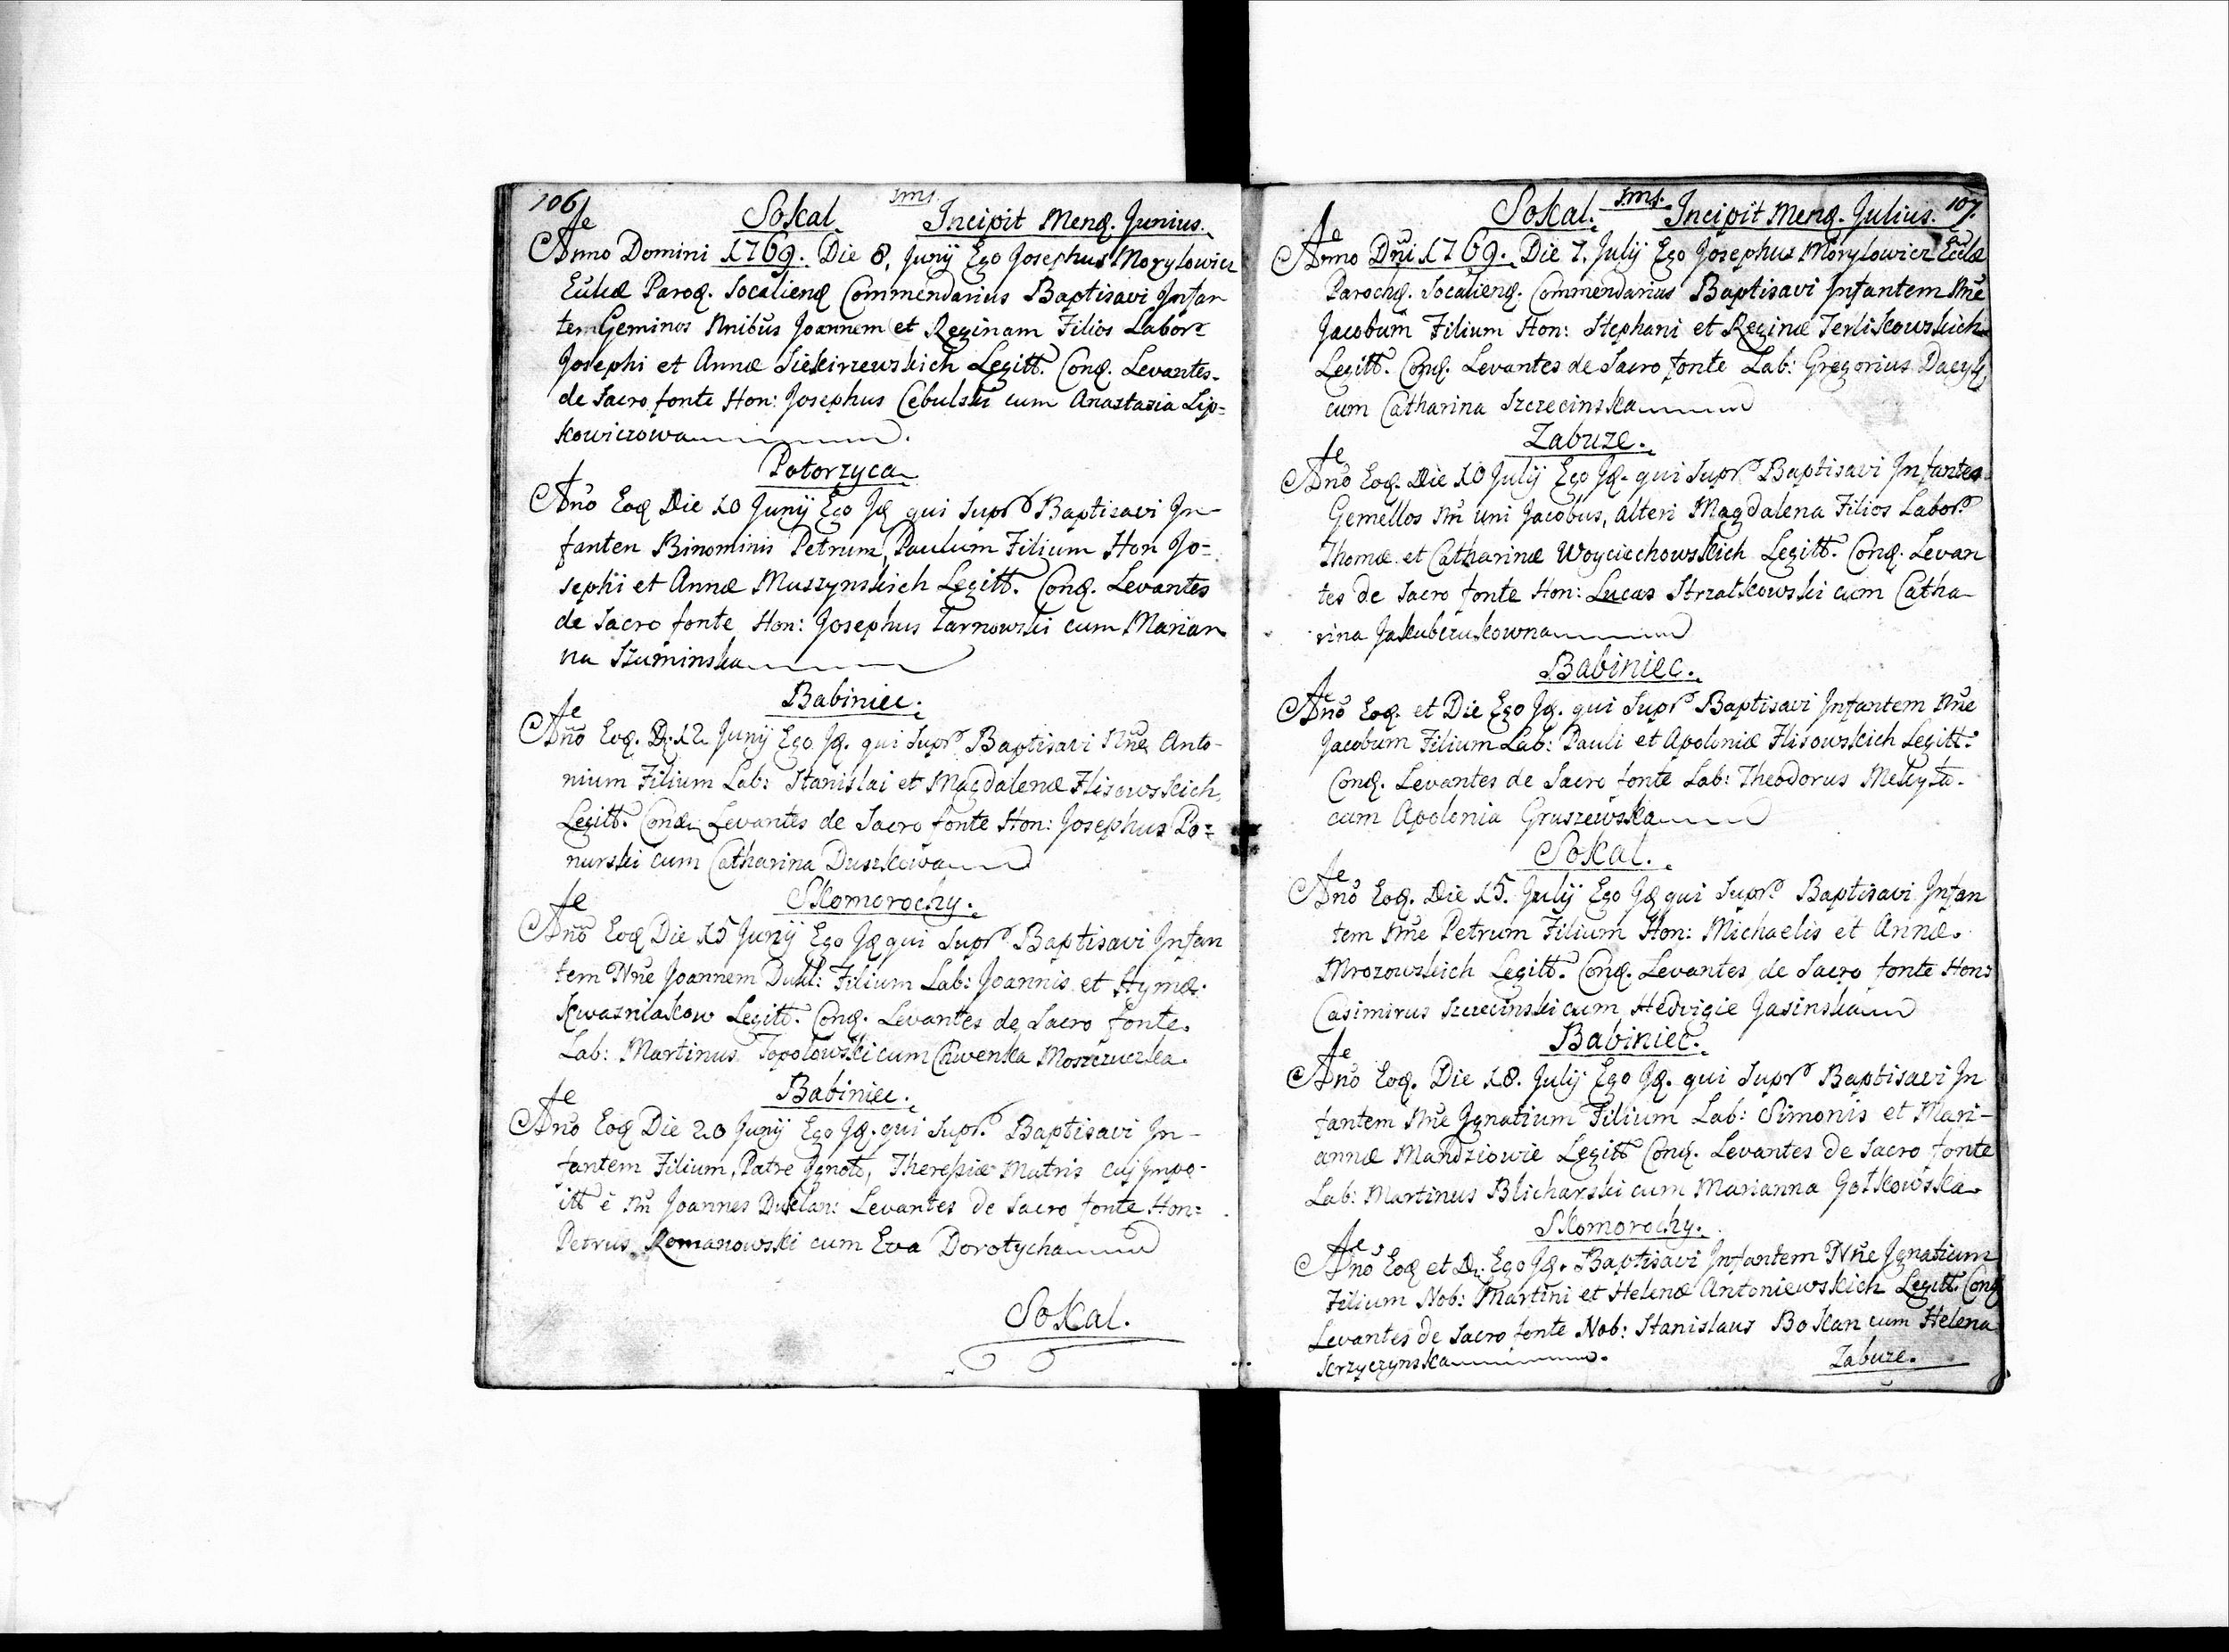 106
Sokal. Incipit Menq. Junius.
Anno Domini 1769. Die 8, Junÿ Ego Josephus Morylowicz
Eccliæ Paroq. Socalienq Commendarius Baptisavi Infan
tem Geminos Nnibus Joannem et Reginam Filios Labor
Josephi et Annæ Siekirzewskich Legitt. Conq. Levantes
de Sacro fonte Hon: Josephus Cebulski cum Anastasia Lip=
kowiczowa
Potorzyca
Año Eoq Die 10 Junÿ Ego Jq qui Supr Baptisavi In-
fanten Binominis Petrum, Paulum Filium Hon Jo=
sephi et Annæ Muszynskich Legitt. Conq. Levantes
de Sacro fonte Hon: Josephus Tarnowski cum Marian
na Szuminska
Babiniec.
Año Eoq. D. 12 Junÿ Ego Jq. qui Supr Baptisavi Nñe Anto-
nium Filium Lab: Stanislai et Magdalenæ Flisowskich
Legitt. Conq. Levantes de Sacro fonte Hon: Josephus Po=
nurski cum Catharina Duszkowa
Skomorochy.
Año Eoq Die 15 Junÿ Ego Jq qui Supr Baptisavi Infan
tem Nñe Joannem Dukl: Filium Lab: Joannis et Hymæ
Kwaznilakow Legitt. Conq. Levantes de Sacro fonte.
Lab: Martinus Topolowski cum Chwenka Moszczuczka.
Babiniec.
Año Eoq Die 20 Junÿ Ego Jq. qui Supr. Baptisavi In-
fantem Filium, Patre Ignoto, Theresiæ Matris cuj Impo-
itt ē Nñ Joannes Duklan: Levantes de Sacro fonte Hon:
Petrus Romanowski cum Eva Dorotycha
Sokal.
107.
Sokal. Incipit Menq. Julius.
Anno Dñi 1769. Die 7. Julÿ Ego Josephus Morylowicz Eccliæ
Parochq. Socalienq. Commendarius Baptisavi Infantem Nñe
Jacobum Filium Hon: Stephani et Reginæ Terliskowskich
Legitt. Conq. Levantes de Sacro fonte Lab: Gregorius
cum Catharina Szczecinska
Zabuze.
Año Eoq. Die 10 Julÿ Ego Jq. qui Supr Baptisavi Infantes
Gemellos Nñ uni Jacobus, alteri Magdalena Filios Labor
Thomæ et Catharinæ Woyciechowskich Legitt. Conq. Levan
tes de Sacro fonte Hon: Lucas Strzalkowski cum Catha
rina Jakubczukowna
Babiniec.
Año Eoq. et Die Ego Jq. qui Supr Baptisavi Infantem Nñe
Jacobum Filium Lab: Pauli et Apoloniæ Flisowskich Legitt.
Conq. Levantes de Sacro fonte Lab: Theodorus
cum Apolonia Gruszewska
Sokal.
Año Eoq. Die 15. Julÿ Ego Jq qui Supr Baptisavi Infan
tem Nñe Petrum Filium Hon: Michaelis et Annæ.
Mrozowskich Legitt. Conq. Levantes de Sacro fonte Hon:
Casimirus Szczecinski cum Hedvigie Jasinska
Babiniec.
Año Eoq. Die 18. Julÿ Ego Jq. qui Supr Baptisavi In
fantem Nñe Ignatium Filium Lab: Simonis et Mari-
annæ Mandziowie Legitt Conq. Levantes de Sacro fonte
Lab: Martinus Blicharski cum Marianna Gotkowska
Skomorochy.
Año Eoq et D. Ego Jq. Baptisavi Infantem Nñe Ignatium
Filium Nob: Martini et Helenæ Antoniewskich Legitt. Conq
Levantes de Sacro fonte Nob: Stanislaus Bokan cum Helena
Krzyczynska
Zabuze.